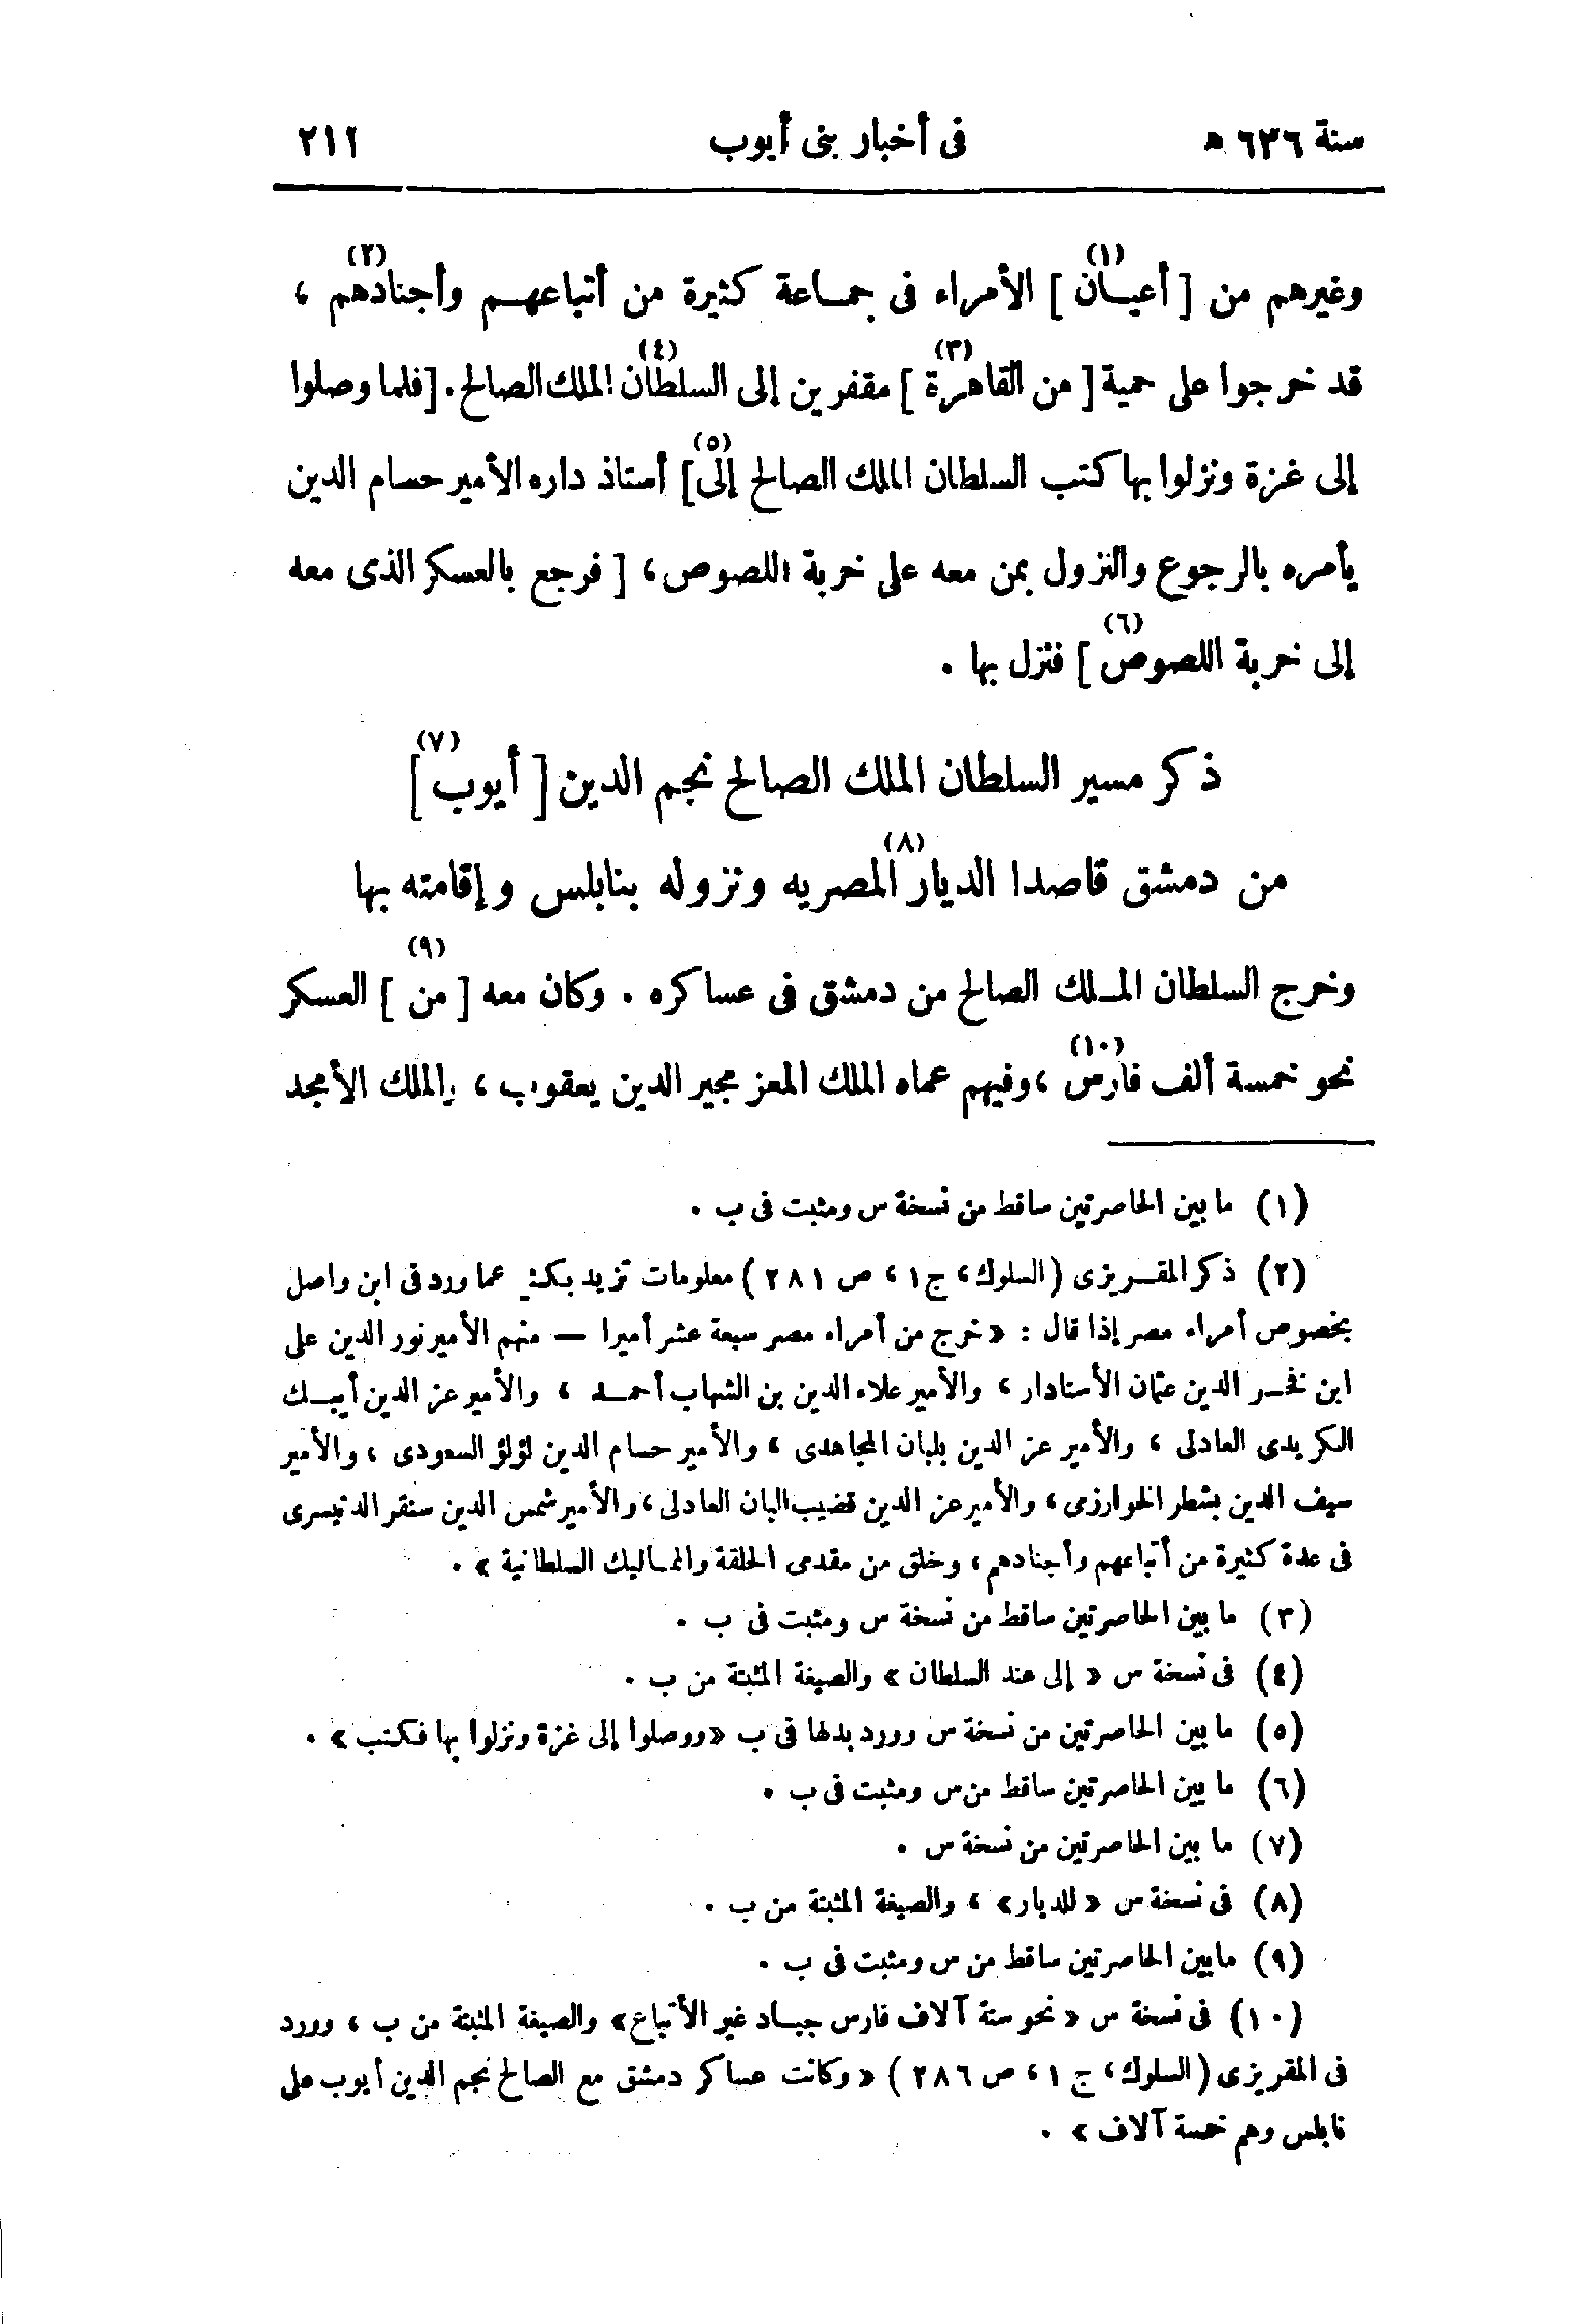 سنة ٦٣٦ هـ في أخبار بنى أيوب ٢١١
وغيرهم من [ أعيـان(١) ] الأمراء فى جمـاعة كثيرة من أتباعهـم وأجنادهم(٢) ،
قد خرجوا على حمية [ من القاهرة(٣) ] مقفرين إلى السلطان(٤) الملك الصالح . [ فلما وصلوا
إلى غزة ونزلوا بها كتب السلطان الملك الصالح إلى(٥) ] أستاذ داره الأمير حسام الدين
يأمره بالرجوع والنزول بمن معه على خربة اللصوص ، [ فرجع بالعسكر الذى معه
إلى خربة اللصوص(٦) ] فنزل بها .
ذكر مسير السلطان الملك الصالح نجم الدين [ أيوب(٧) ]
من دمشق قاصدا الديار(٨) المصريه ونزوله بنابلس وإقامته بها
وخرج السلطان المـلك الصالح من دمشق فى عساكره . وكان معه [ من(٩) ] العسكر
نحو خمسة ألف فارس(١٠) ، وفيهم عماه الملك المعز مجير الدين يعقوب ، والملك الأمجد
(١) ما بين الحاصرتين ساقط من نسخة س ومثبت فى ب .
(٢) ذكر المقـريزى ( السلوك ، ج١ ، ص ٢٨١ ) معلومات تزيد بكثير عما ورد فى ابن واصل
بخصوص أمراء مصر إذا قال : « خرج من أمراء مصر سبعة عشر أميرا — منهم الأمير نور الدين على
ابن فخـر الدين عثمان الأستادار ، والأمير علاء الدين بن الشهاب أحمـد ، والأمير عز الدين أيبـك
الكريدى العادلى ، والأمير عز الدين بلبان المجاهدى ، والأمير حسام الدين لؤلؤ السعودى ، والأمير
سيف الدين بشطر الخوارزمى ، والأمير عز الدين قضيب البان العادلى ، والأمير شمس الدين سنقر الدنيسرى
فى عدة كثيرة من أتباعهم وأجنادهم ، وخلق من مقدمى الحلقة والمـاليك السلطانية » .
(٣) ما بين الحاصرتين ساقط من نسخة س ومثبت فى ب .
(٤) فى نسخة س « إلى عند السلطان » والصيغة المثبتة من ب .
(٥) ما بين الحاصرتين من نسخة س وورد بدلها فى ب « ووصلوا إلى غزة ونزلوا بها فكتب » .
(٦) ما بين الحاصرتين ساقط من س ومثبت فى ب .
(٧) ما بين الحاصرتين من نسخة س .
(٨) فى نسخة س « للديار » ، والصيغة المثبتة من ب .
(٩) مابين الحاصرتين ساقط من س ومثبت فى ب .
(١٠) فى نسخة س « نحو ستة آلاف فارس جيـاد غير الأتباع » والصيغة المثبتة من ب ، وورد
فى المقريزى ( السلوك ، ج ١ ، ص ٢٨٦ ) « وكانت عساكر دمشق مع الصالح نجم الدين أيوب على
نابلس وهم خمسة آلاف » .